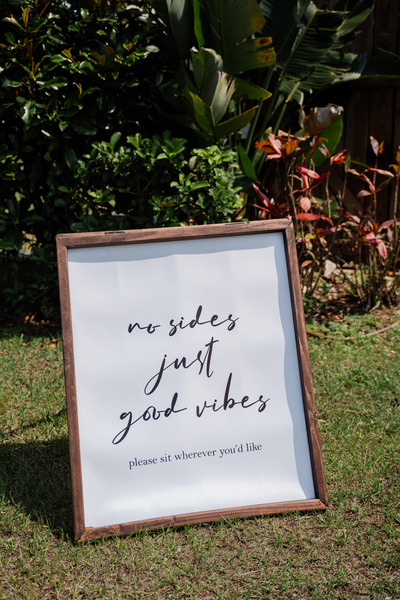 no sides
just
good vibes
please sit wherever you'd like